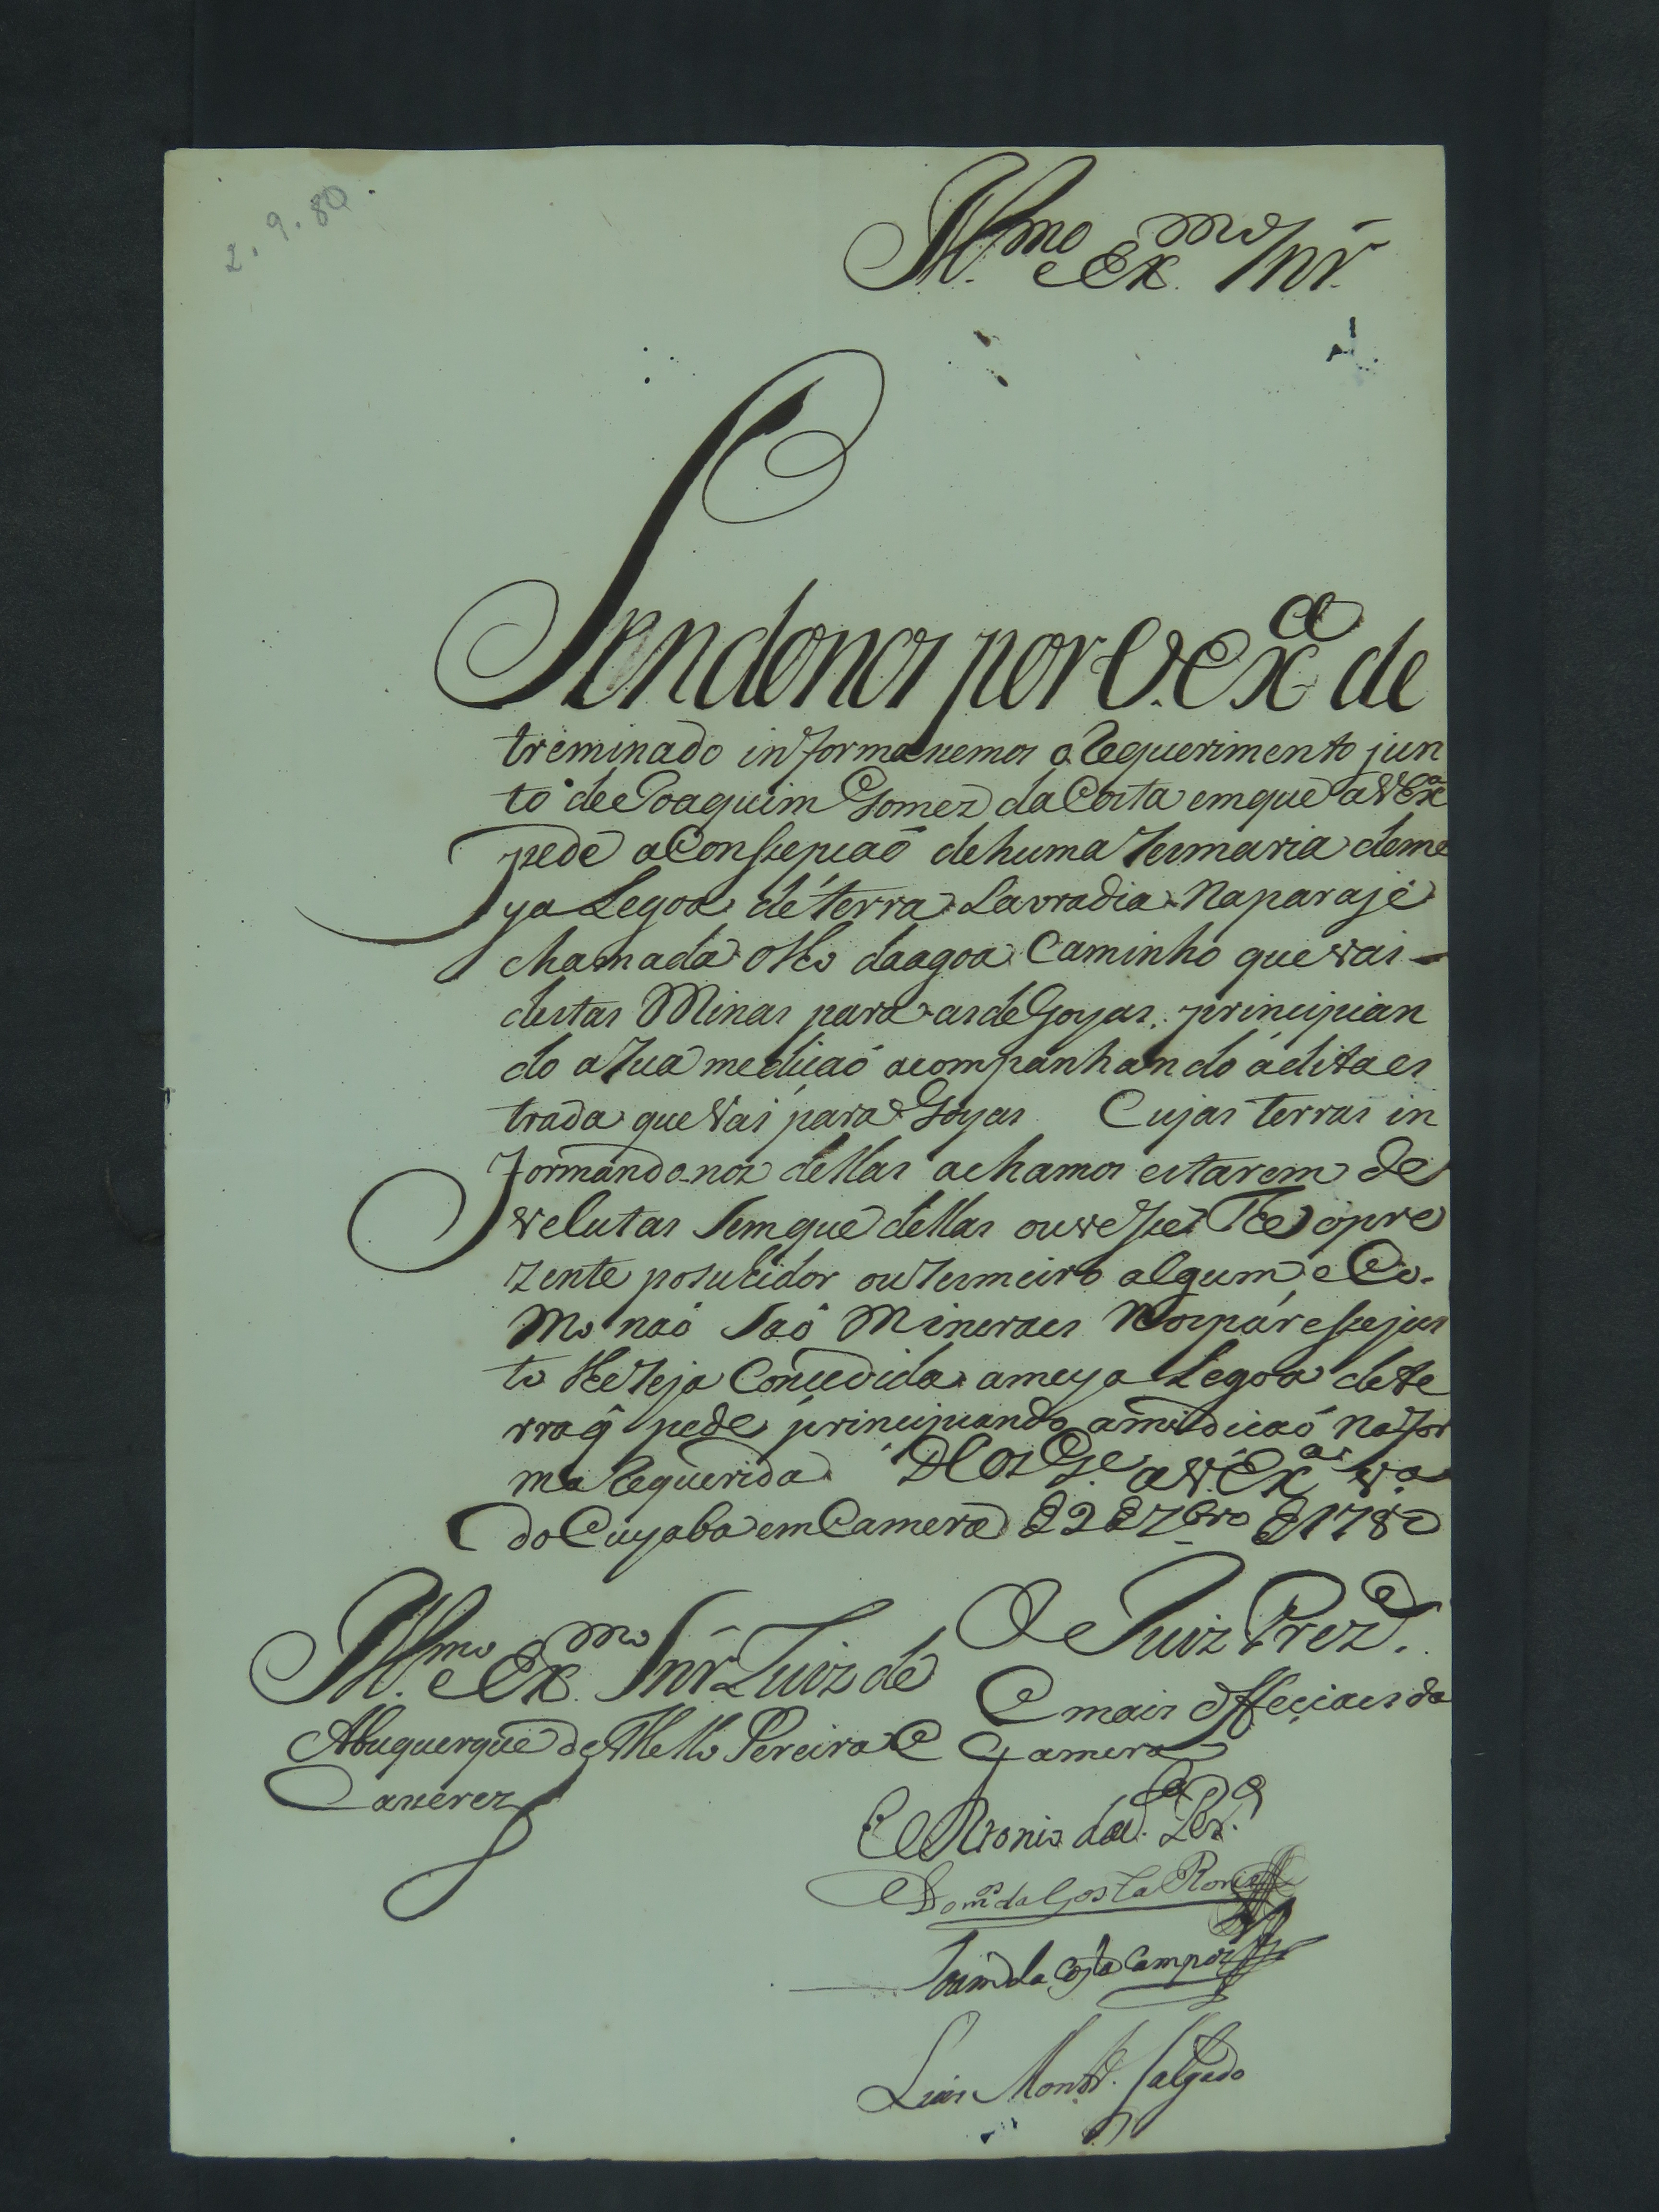 2.9.80
Ill.mo e Ex.mo Snr.
Sendonos por V. Exca de
treminado informasemos o Requerimento jun
to de Joaquim Gomez da Costa em que a V Exa
pede a Conssepçaó de huma Sesmaria de me
ya Legoa de terra Lavradia na paraje
chamada olho da agoa Caminho que vai
destas Minas para as de Goyas, principian
do a sua mediçaó acompanhando a dita es
trada que vai para Goyas Cujas terras in
formando-nos dellas achamos estarem de
velutas sem que dellas ouvesse The o pre
zente posuhidor ou sesmeiro algum, e Co-
mo naó saó Mineraes Nos páresse jus
to lhe seja Concedida a meya Legoa de te
rra q̃ pede principiando a midicaó na for
ma Requerida. D.s G.e a V. Ex.a V.a
do Cuyaba em Camera de 2 de 7bro de 1780
Ill.mo e Ex.mo Snr Luiz de
Albuquerque de Mello Pereira e
Caseres
O Juiz Prezd.e
e mais offeciaes da
Camera
Antonio da
Dom.os da Costa
Joam da Costa Campos
Luis Mont.ro Salgado